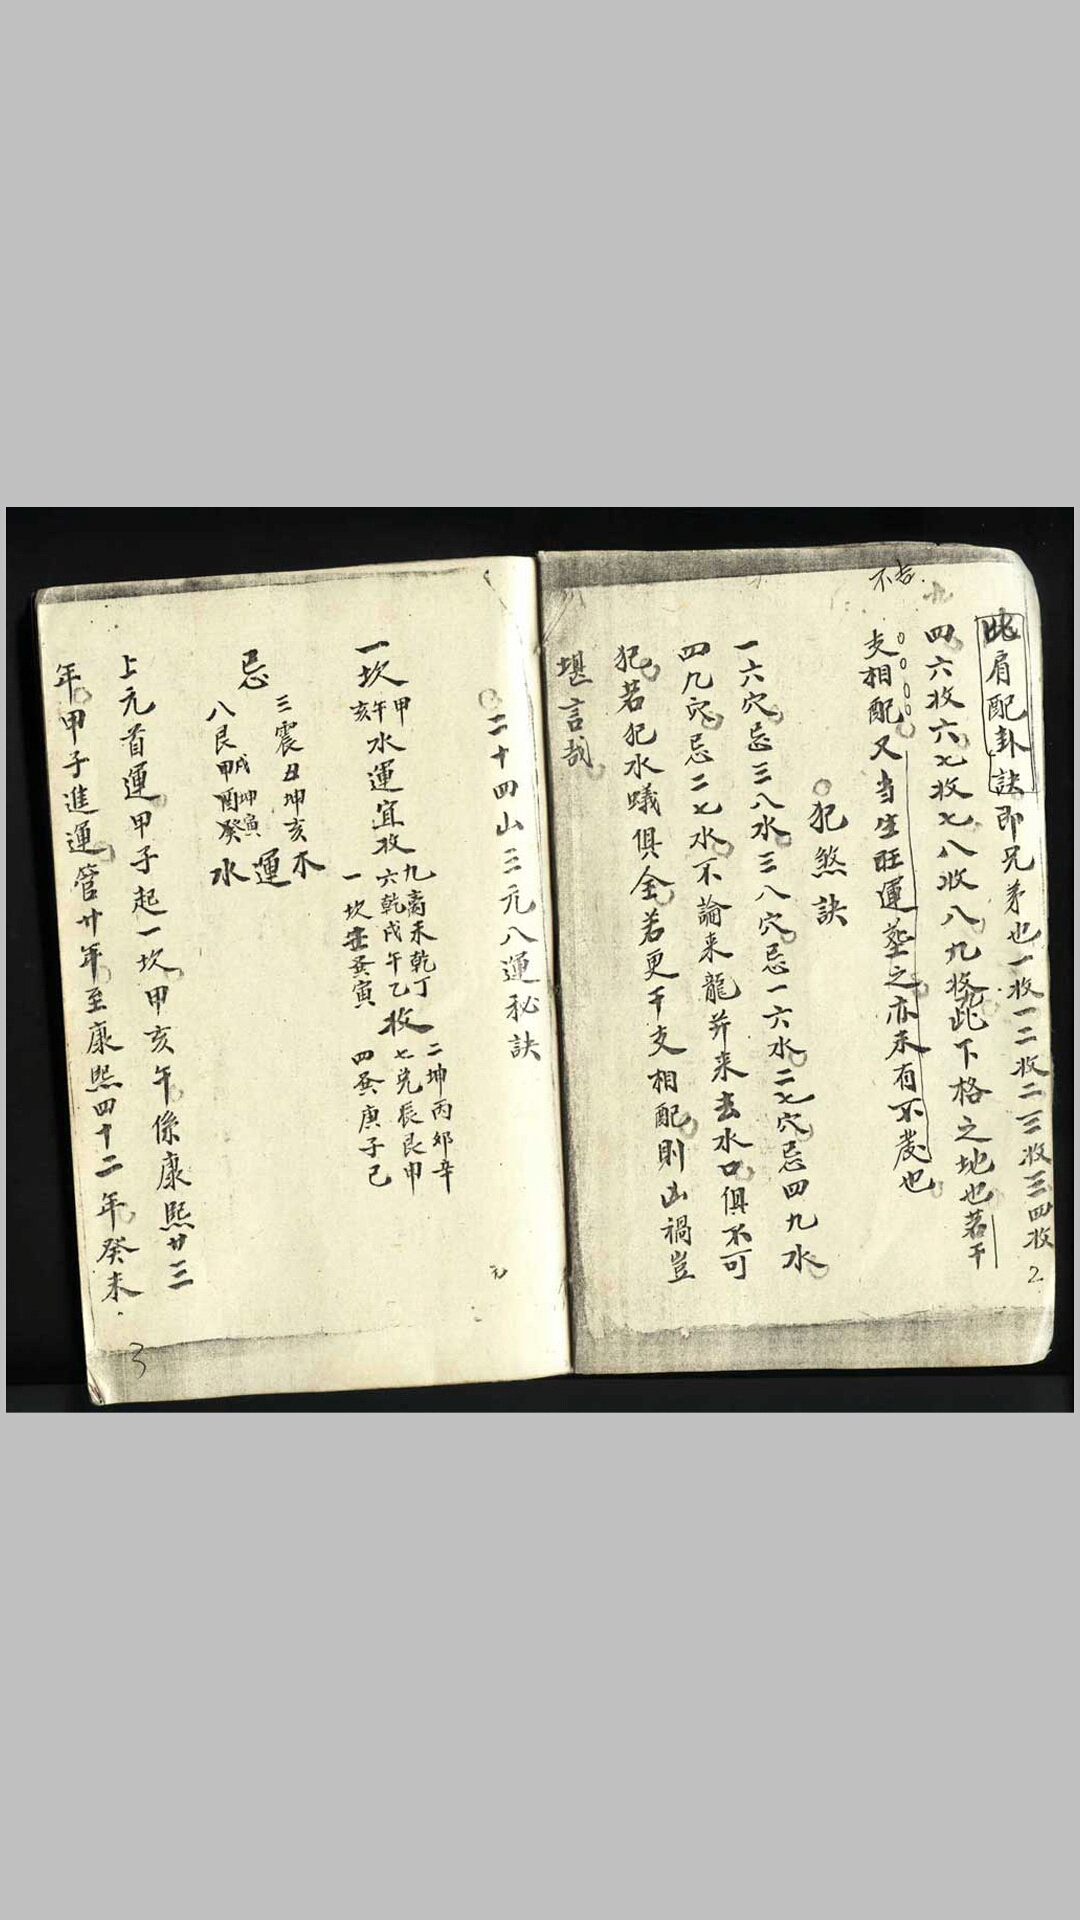 不吉
比肩配卦訣即兄弟也一收一二收二三收三四收
四六收六七收七八收八九收九此下格之地也若干
支相配又当生旺運塟之亦未有不發也
犯煞訣
一六穴忌三八水三八穴忌一六水二七穴忌四九水
四九穴忌二七水不論来龍并来去水口俱不可
犯若犯水蟻俱全若更干支相配則凶禍豈
堪言哉
2
二十四山三元八運秘訣
一坎甲午亥水運宜收九离未乾丁六乾戌午乙一坎壬巽寅收二坤丙卯辛七兌辰艮申四巽庚子己
忌三震丑坤亥八艮甲戌坤寅酉癸水運
上元首運甲子起一坎甲亥午係康熙廿三
年甲子進運管廿年至康熙四十二年癸未
3